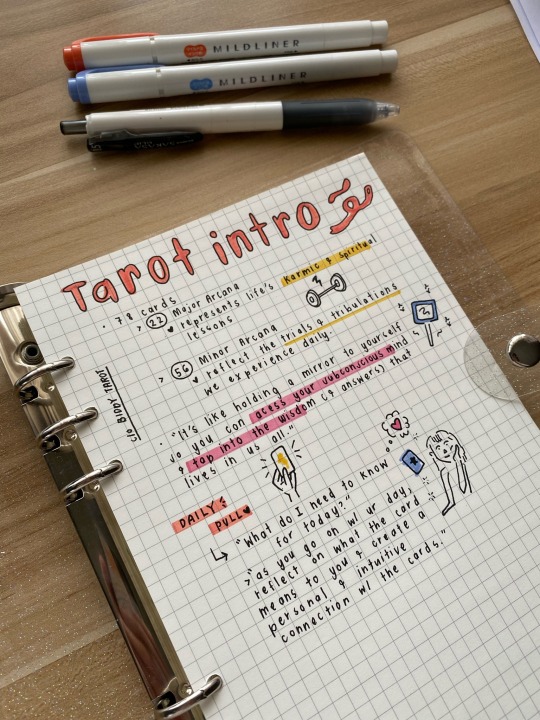 MILDLINER
MILDLINER
Tarot intro
• 78 cards
> 22 Major Arcana
represents life's Karmic & spiritual
lessons
> 56 Minor Arcana
reflect the trials & tribulations
we experience daily.
c/o BIDDY TAROT
• "It's like holding a mirror to yourself
so you can acess your subconscious mind
& tap into the wisdom (& answers) that
lives in us all."
DAILY
PULL
"What do I need to know
for today?"
> "as you go on w/ ur day,
reflect on what the card
means to you & create a
personal & intuitive
connection w/ the cards."